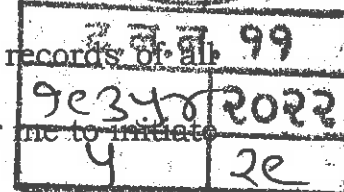 records of all ११
१९३५४ २०२२
me to initiate
५ २९